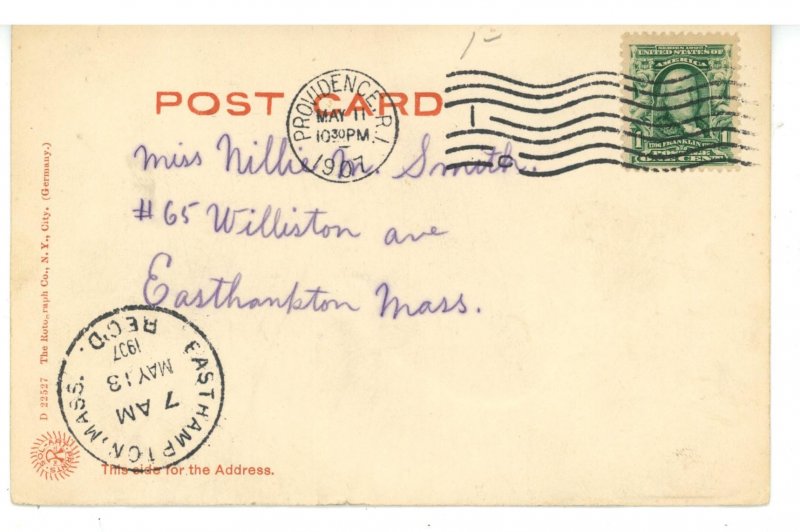 POST CARD
PROVIDENCE, R.I.
MAY 11
10 30 PM
1907
SERIES 1902
UNITED STATES OF
AMERICA
1 FRANKLIN 1
POSTAGE
ONE CENT
Miss Nillie M. Smith.
#65 Williston ave
Easthankton Mass.
EASTHAMPTON, MASS.
7 AM
MAY 13
1907
REC'D.
D 22527 The Rotograph Co., N. Y., City. (Germany.)
This side for the Address.